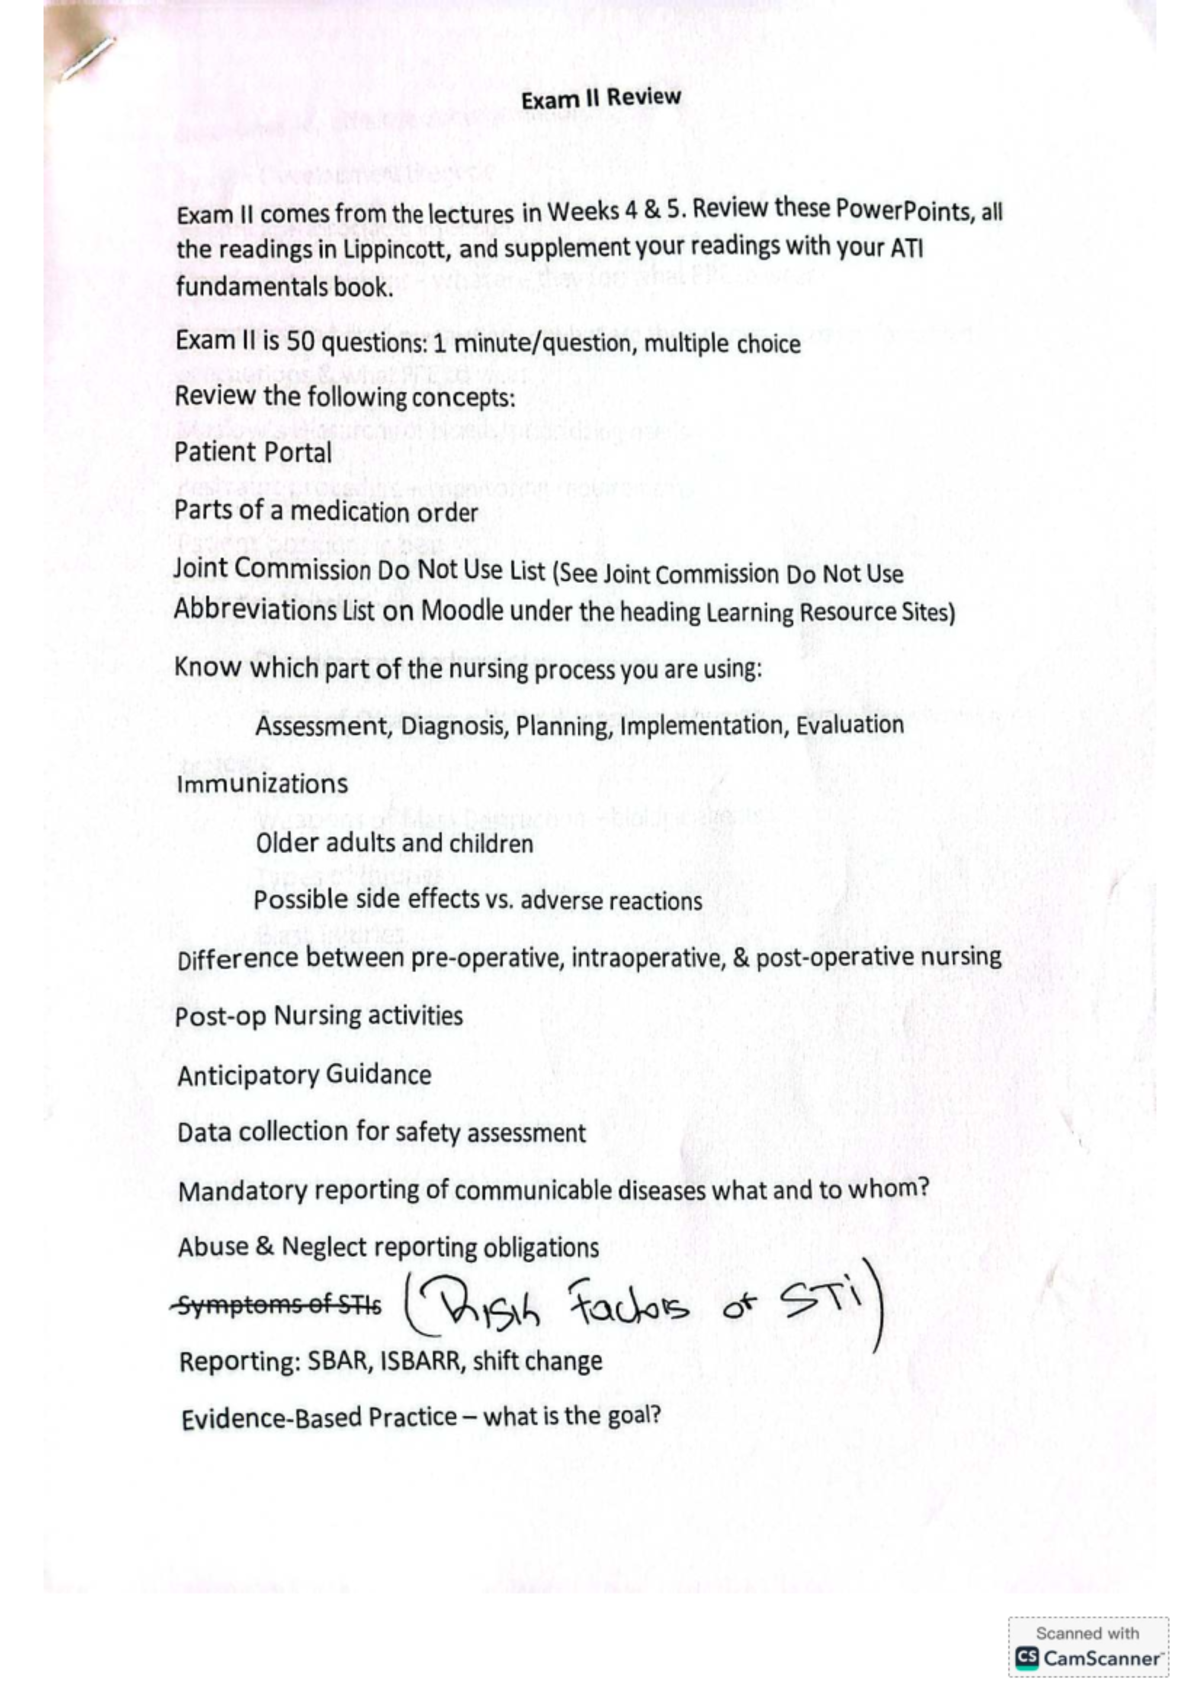 Exam II Review
Exam II comes from the lectures in Weeks 4 & 5. Review these PowerPoints, all
the readings in Lippincott, and supplement your readings with your ATI
fundamentals book.
Exam II is 50 questions: 1 minute/question, multiple choice
Review the following concepts:
Patient Portal
Parts of a medication order
Joint Commission Do Not Use List (See Joint Commission Do Not Use
Abbreviations List on Moodle under the heading Learning Resource Sites)
Know which part of the nursing process you are using:
Assessment, Diagnosis, Planning, Implementation, Evaluation
Immunizations
Older adults and children
Possible side effects vs. adverse reactions
Difference between pre-operative, intraoperative, & post-operative nursing
Post-op Nursing activities
Anticipatory Guidance
Data collection for safety assessment
Mandatory reporting of communicable diseases what and to whom?
Abuse & Neglect reporting obligations
Symptoms of STIs (Risk Factors of STi)
Reporting: SBAR, ISBARR, shift change
Evidence-Based Practice – what is the goal?
Scanned with
CS CamScanner